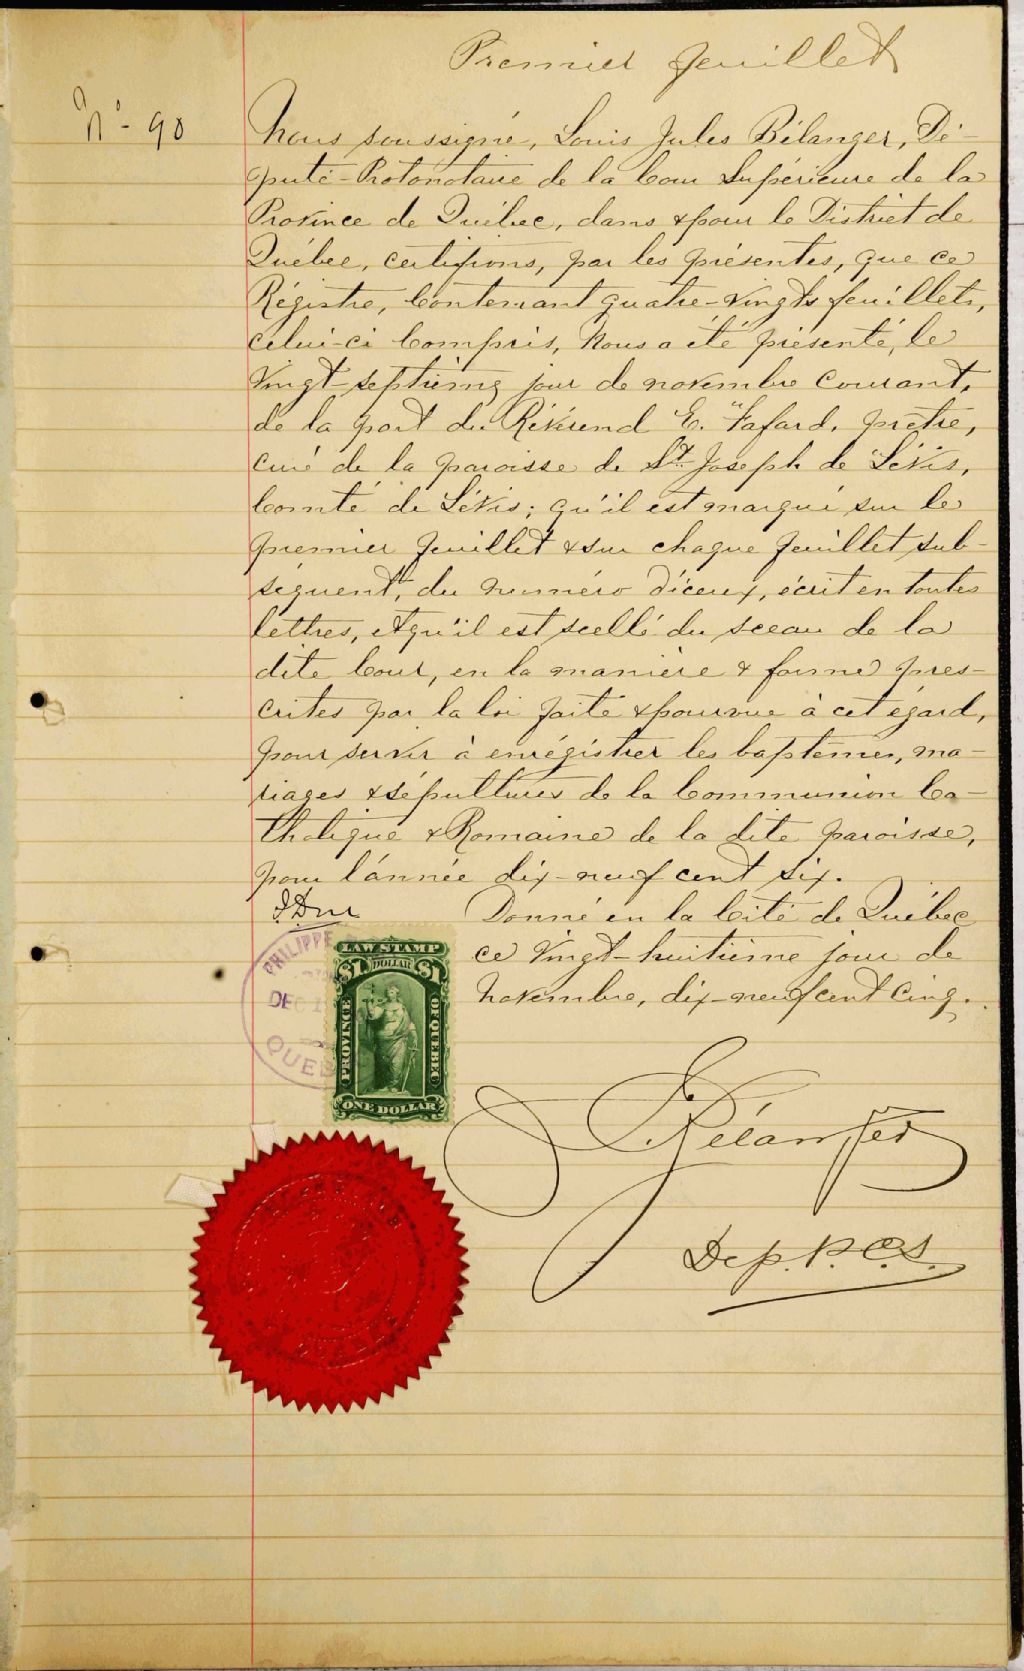 Premier feuillet
No- 90
Nous soussigné, Louis Jules Bélanger, Dé-
puté-Protonotaire de la Cour Supérieure de la
Province de Québec, dans & pour le District de
Québec, certifions, par les présentes, que ce
Régistre, Contenant quatre-vingts feuillets,
celui-ci Compris, Nous a été présenté, le
Vingt-septième jour de novembre courant,
de la part du Révérend E. Fafard, prêtre,
curé de la paroisse de St. Joseph de Lévis,
Comté de Lévis; qu'il est marqué sur le
premier feuillet & sur chaque feuillet sub-
séquent, du numéro d'iceux, écrit en toutes
lettres, et qu'il est scellé du sceau de la
dite Cour, en la manière & forme pres-
crites par la loi faite & pourvue à cet égard,
pour servir à enrégistrer les baptêmes, ma-
riages & sépultures de la Communion Ca-
tholique & Romaine de la dite paroisse,
pour l'année dix-neuf cent six.
Donné en la Cité de Québec
ce Vingt-huitième jour de
Novembre, dix-neuf cent Cinq.
PHILIPPE
DEC 1
QUEB
LAW STAMP
$1 DOLLAR $1
PROVINCE OF QUEBEC
ONE DOLLAR
Bélanger
Dep. P.C.S.